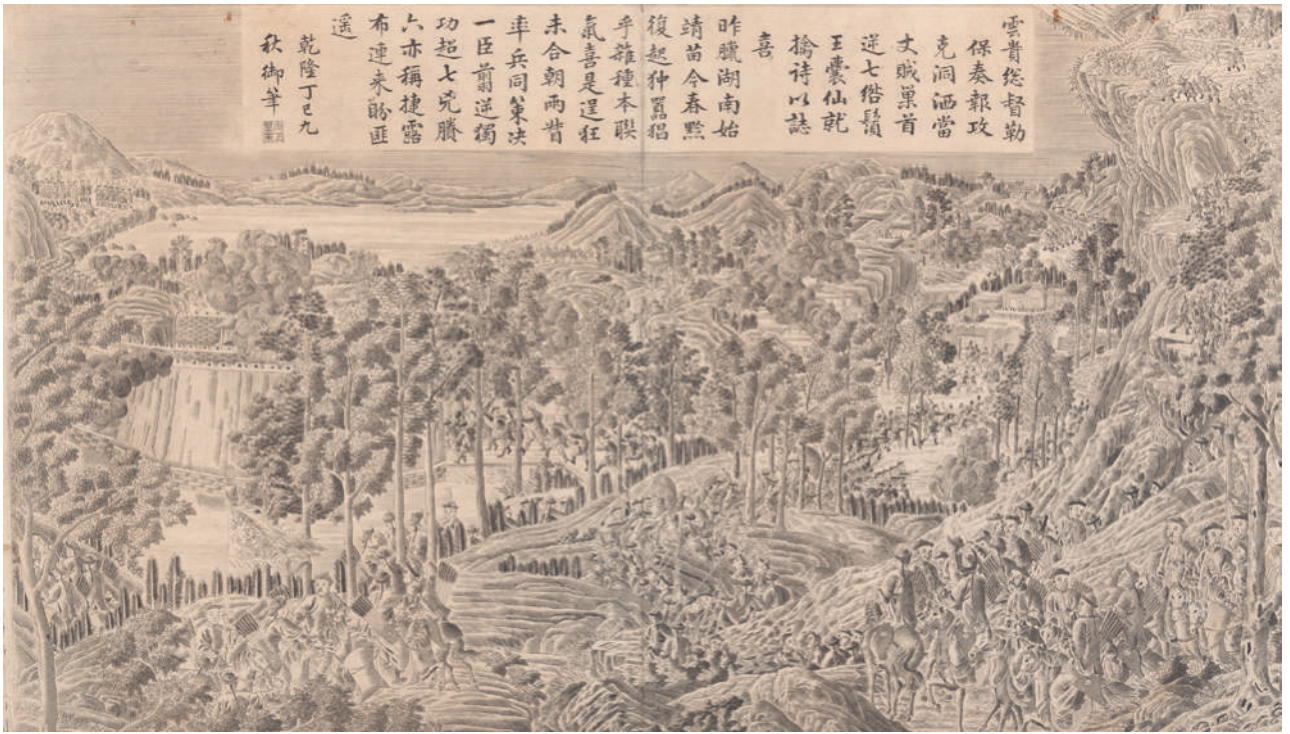 雲貴總督勒
保奏報攻
克洞洒當
丈賊巢首
逆七綹鬚
王囊仙就
擒詩以誌
喜
昨臘湖南始
靖苗今春黔
復起狆囂猖
乎雜種本聯
氣喜是逞狂
未合朝兩
率兵同策決
一臣翦逆獨
功超七兇賸
六亦稱捷露
布連來盼匪
遥
乾隆丁巳九
秋御筆